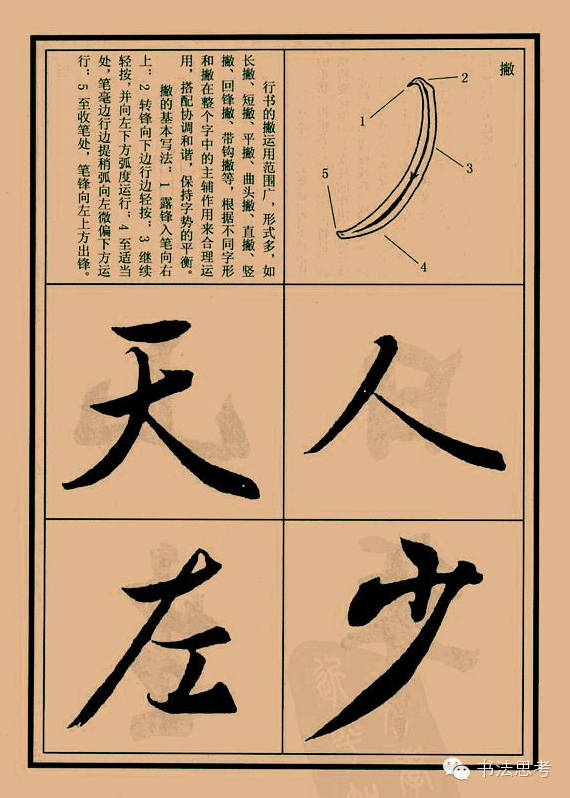 撇
1
2
3
4
5
行书的撇运用范围广，形式多，如
长撇、短撇、平撇、曲头撇、直撇、竖
撇、回锋撇、带钩撇等，根据不同字形
和撇在整个字中的主辅作用来合理运
用，搭配协调和谐，保持字势的平衡。
撇的基本写法：1 露锋入笔向右
上；2 转锋向下边行边轻按；3 继续
轻按，并向左下方弧度运行；4 至适当
处，笔毫边行边提稍弧向左微偏下方运
行；5 至收笔处，笔锋向左上方出锋。
人
天
少
左
书法思考